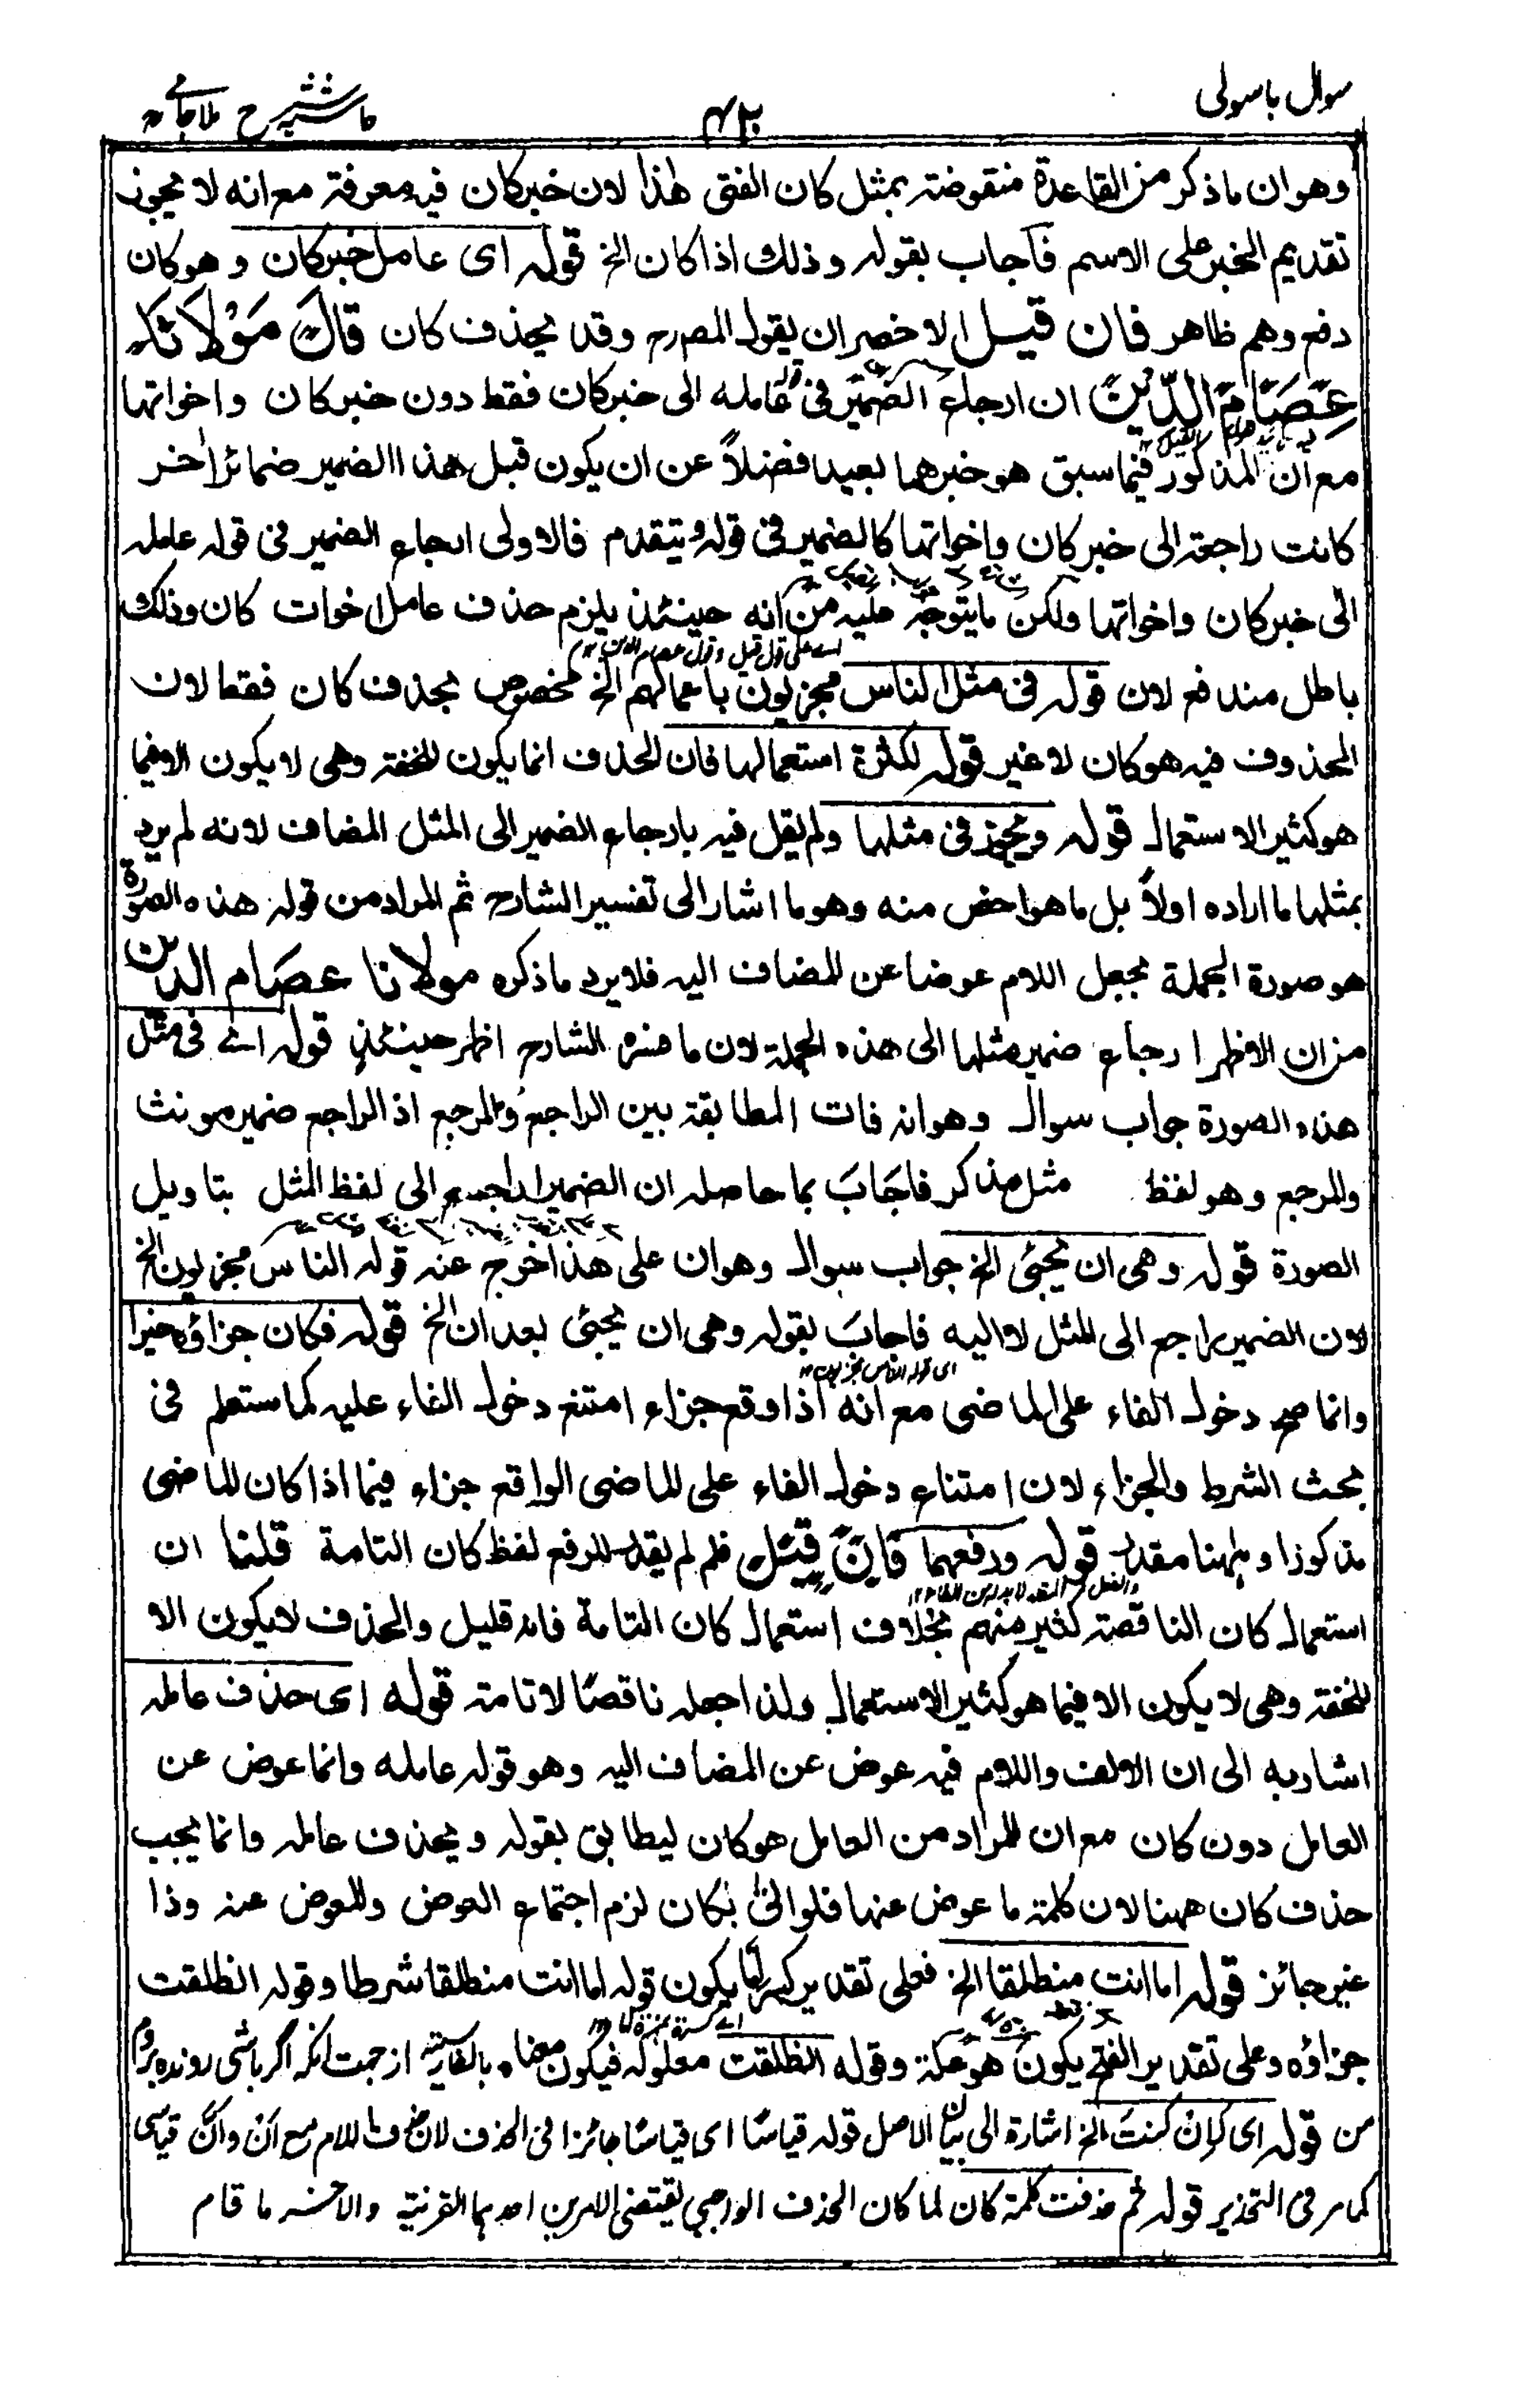 سوال باسولی
حاشیہ شرح ملا جامی
وهو ان ما ذكر من القاعدة منقوضة بمثل كان الفتى هذا لان خبر كان فيه معرفة مع انه لا يجوز
تقديم الخبر على الاسم فاجاب بقوله وذلك اذا كان الخ قوله اى عامل خبر كان وهو كان
دفع وهم ظاهر فان قيل الاخصر ان يقول المصرح وقد يحذف كان قال مَوْلَانَا
عِصَامُ الدِّيْن ان ارجاع الضمير فى قوله عامله الى خبر كان فقط دون خبر كان واخواتها
مع ان المذكور فيما سبق هو خبرهما بعيد فضلاً عن ان يكون قبل هذا الضمير ضمائر اخر
كانت راجعة الى خبر كان واخواتها كالضمير فى قوله ويتقدم فالاولى ارجاع الضمير فى قوله عامله
الى خبر كان واخواتها ولكن ما يتوجه عليه من انه حينئذ يلزم حذف عامل اخوات كان وذلك
اے على قول قيل وقول عصام الدين ١٢
باطل مندفع لان قوله فى مثل الناس مجزيون باعمالهم الخ مخصوص بحذف كان فقط لان
المحذوف فيه هو كان لا غير قوله لكثرة استعمالها فان الحذف انما يكون للخفة وهى لا يكون الا فيما
هو كثير الاستعمال قوله ويجوز فى مثلها ولم يقل فيه بارجاع الضمير الى المثل المضاف لانه لم يرد
بمثلها ما اراده اولاً بل ما هو اخص منه وهو ما اشار الى تفسير الشارح ثم المراد من قوله هذه الصورة
هو صورة الجملة بجعل اللام عوضا عن المضاف اليه فلا يرد ما ذكره مولانا عصام الدين
من ان الاظهر ارجاع ضمير مثلها الى هذه الجملة لان ما فسره الشارح اظهر حينئذ قوله اے فى مثل
هذه الصورة جواب سوال وهو انه فات المطابقة بين الراجع والمرجع اذ الراجع ضمير مونث
والمرجع وهو لفظ مثل مذكر فاجَابَ بما حاصله ان الضمير راجع الى لفظ المثل بتاويل
الصورة قوله وهى ان يجئ الخ جواب سوال وهو ان على هذا خرج عنه قوله الناس مجزيون الخ
لان الضمير راجع الى المثل لا اليه فاجابَ بقوله وهى ان يجئ بعد ان الخ قوله فكان جزاؤه خيرا
اى قوله الناس مجزيون ١٢
وانما صح دخول الفاء على الماضى مع انه اذا وقع جزاء امتنع دخول الفاء عليه كما ستعلم فى
بحث الشرط والجزاء لان امتناع دخول الفاء على الماضى الواقع جزاء فيما اذا كان الماضى
مذكورا وههنا مقدر قوله ورفعهما فَاِنْ قِيْلَ فلم لم يقدر للرفع لفظ كان التامة قلنا ان
استعمال كان الناقصة كثير منهم بخلاف استعمال كان التامة فانه قليل والحذف لا يكون الا
للخفة وهى لا يكون الا فيما هو كثير الاستعمال ولذا جعله ناقصًا لا تامة قوله اى حذف عامله
اشار به الى ان الالف واللام فيه عوض عن المضاف اليه وهو قوله عامله وانما عوض عن
العامل دون كان مع ان المراد من العامل هو كان ليطابق بقوله ويحذف عامله وانما يجب
حذف كان ههنا لان كلمة ما عوض عنها فلو اتى بكان لزم اجتماع العوض والمعوض عنه وذا
غير جائز قوله اما انت منطلقا الخ فعلى تقدير كسر اما يكون قوله اما انت منطلقا شرطا وقوله انطلقت
جزاؤه وعلى تقدير الفتح يكون هو علة وقوله انطلقت معلوله فيكون معناه بالفارسية از جهت آنكه اگر باشى رونده بروم
من قوله اى لان كنت الخ اشارة الى بيان الاصل قوله قياسًا اى قياسًا جائزا فى الحذف لان حذف اللام مع اَنْ واَنَّ قياسى
كما مر فى التحذير قوله ثم حذفت كلمة كان لما كان الحذف الواجبى يقتضى الامرين احدهما القرينة والاخر ما قام